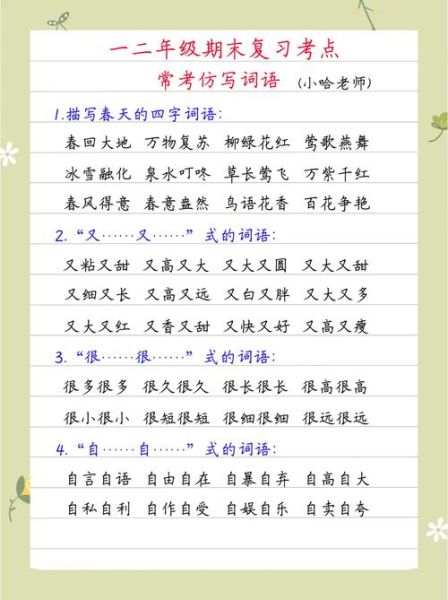 一二年级期末复习考点
常考仿写词语 (小哈老师)
1.描写春天的四字词语:
春回大地 万物复苏 柳绿花红 莺歌燕舞
冰雪融化 泉水叮咚 草长莺飞 万紫千红
春风得意 春意盎然 鸟语花香 百花争艳
2.“又……又……”式的词语:
又粘又甜 又高又大 又大又圆 又大又甜
又细又长 又高又远 又白又胖 又大又多
又大又红 又香又甜 又快又好 又高又瘦
3.“很……很……”式的词语:
很多很多 很久很久 很长很长 很高很高
很小很小 很短很短 很细很细 很远很远
4.“自……自……”式的词语:
自言自语 自由自在 自暴自弃 自高自大
自私自利 自作自受 自娱自乐 自卖自夸